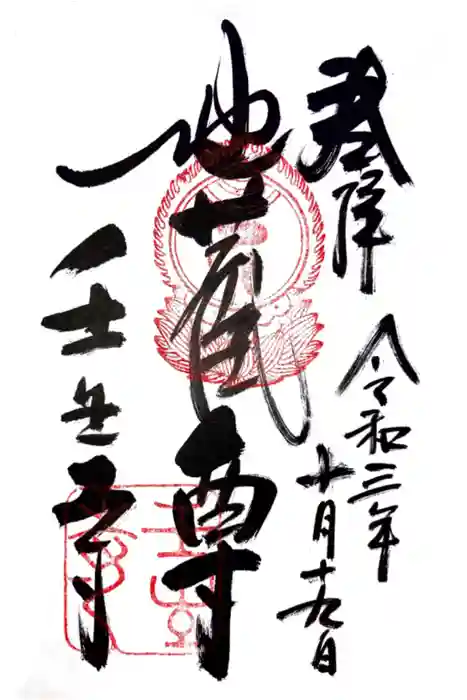 奉拝
令和三年
十月十九日
地蔵尊
壬生寺